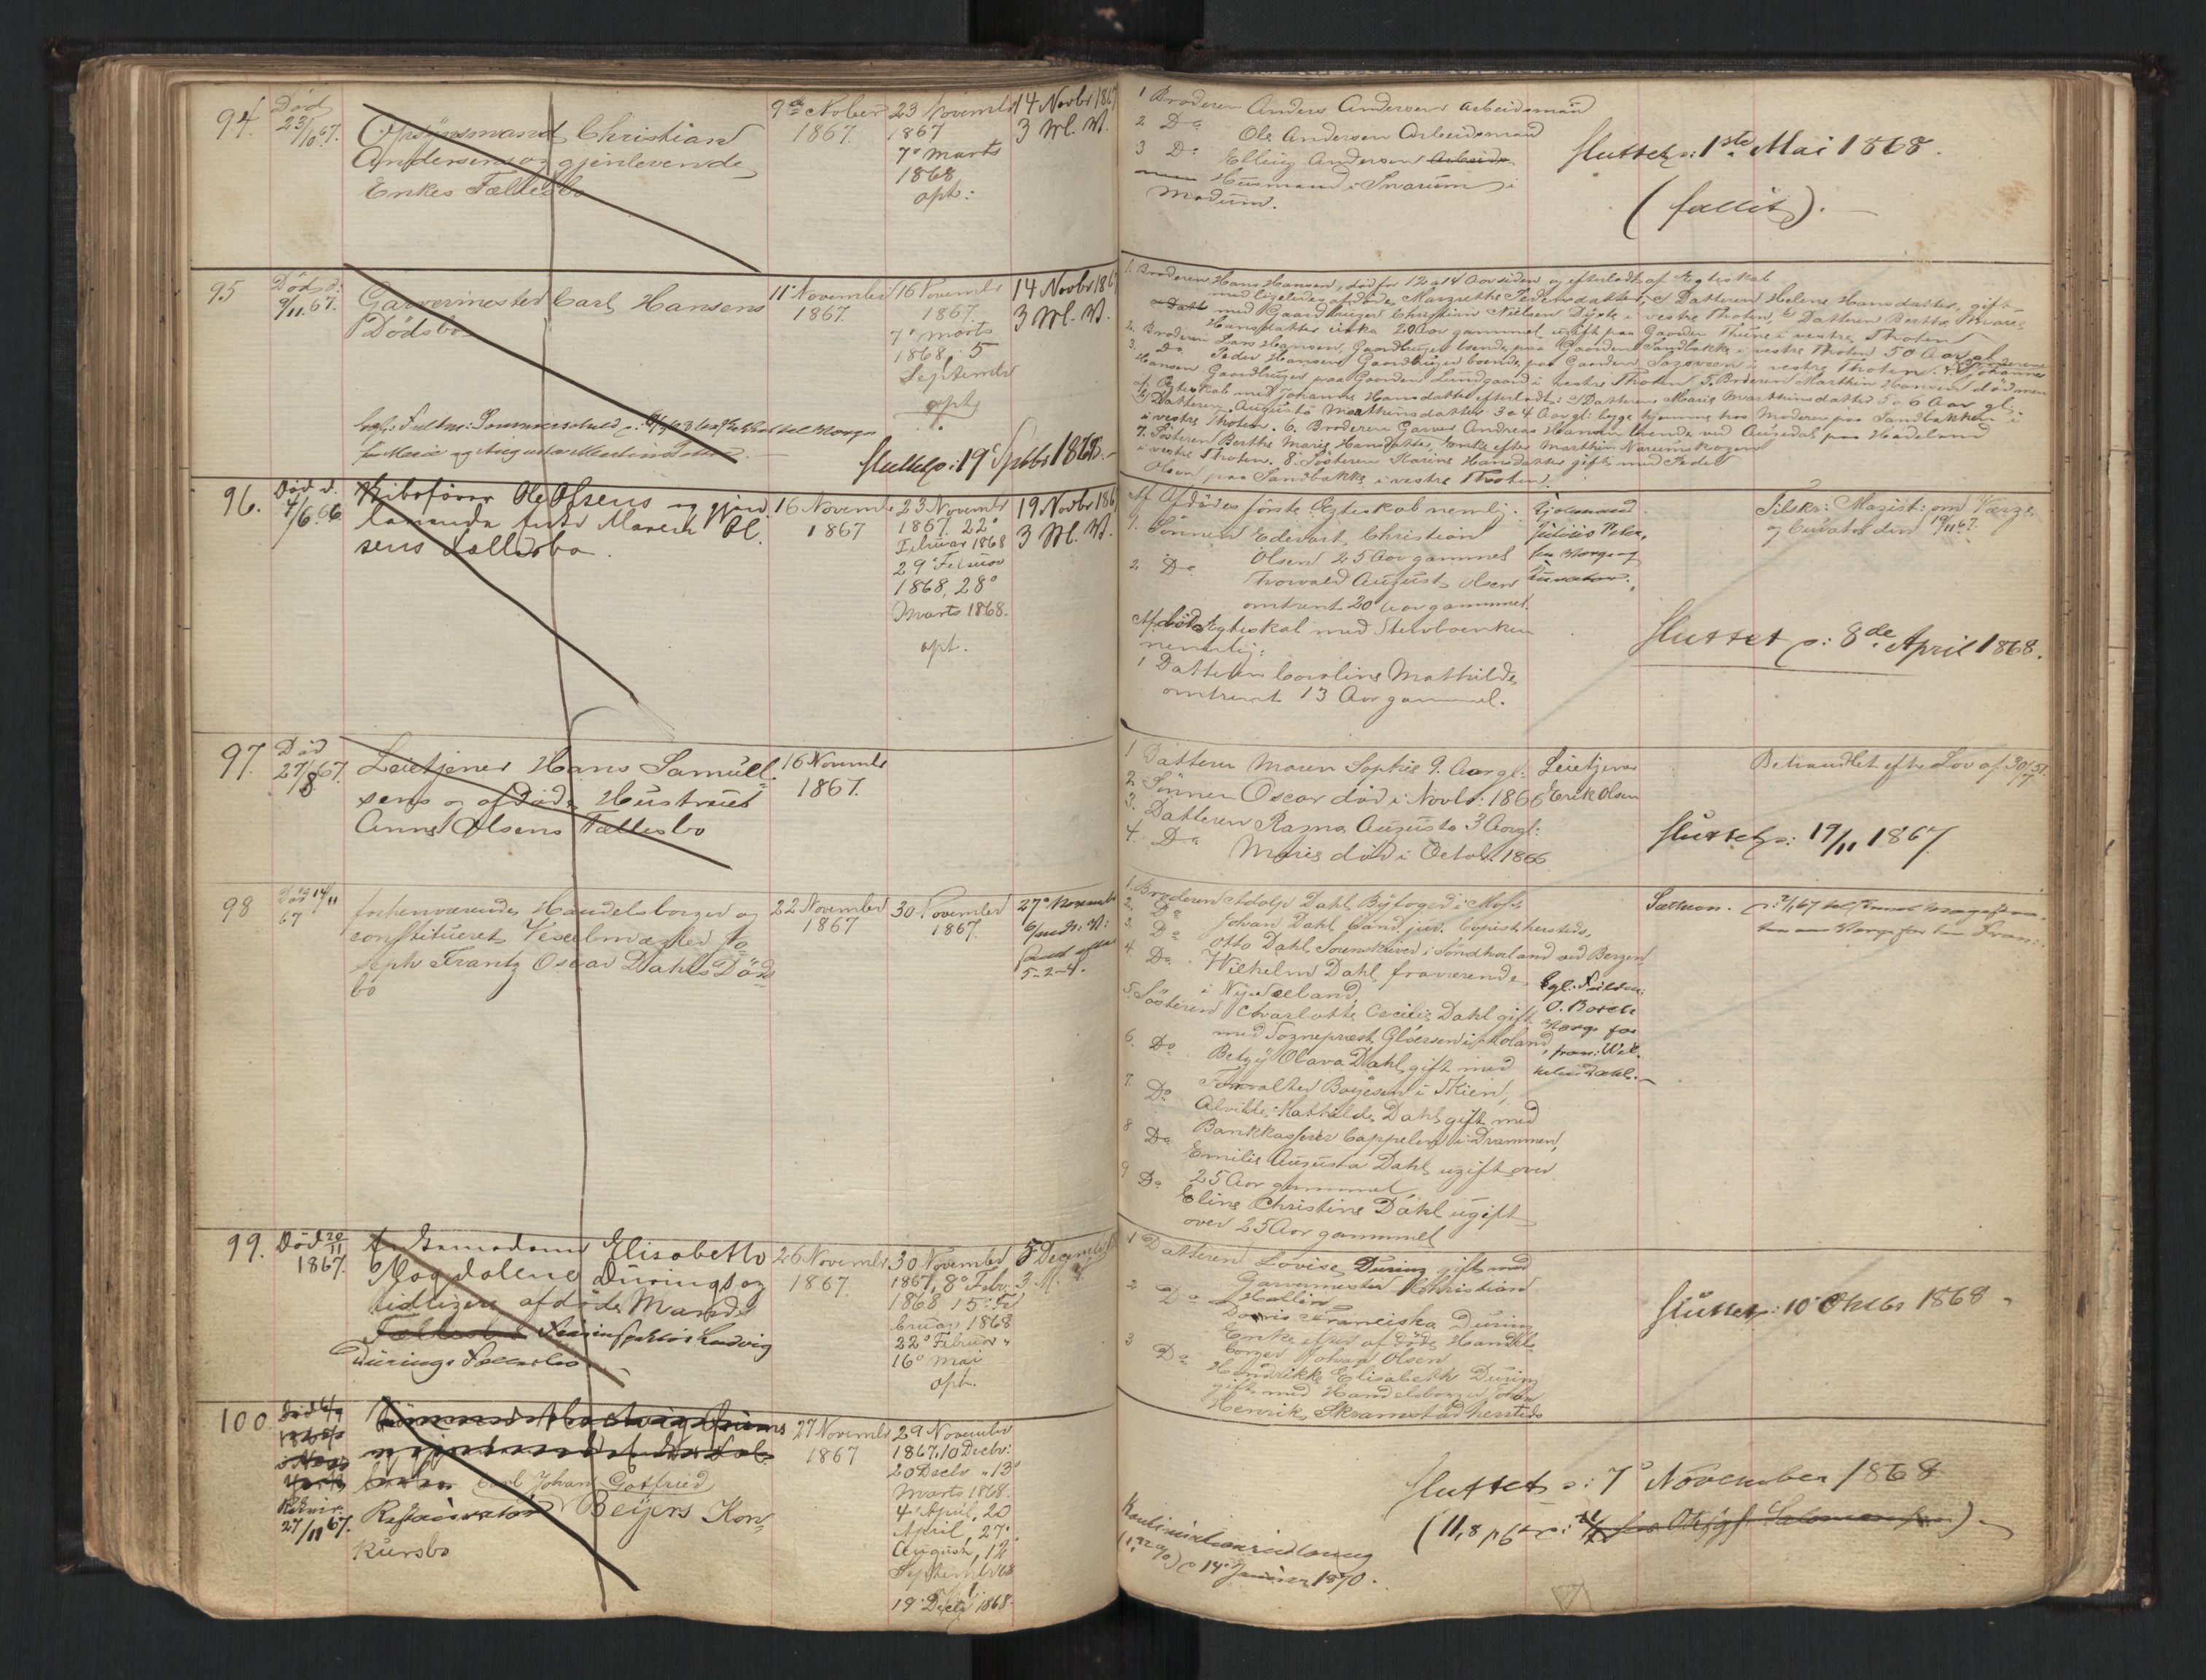 94.
Død
23/10 67.
Opsynsmand Christian
Andersens og gjenlevende
Enkes Fællesbo
9de Novber
1867.
23 Novembr
1867
7de Marts
1868
opt:
14 Novbr 1867
3 M. V.
1 Broderen Anders Andersen Arbeidsmand
2 Do Ole Andersen Arbeidsmand
3 Do Elling Andersen
Huusmand i Snarum i
Modum.
Sluttet p: 1ste Mai 1868.
(fallit).
95
Død d:
9/11 67.
Garvermester Carl Hansens
Dødsbo
11 November
1867
16 Novembr
1867.
7de Marts
1868, 5
Septembr
opt.
14 Novbr 1867
3 M. V.
for Marie og Augusta Martinsdøttre.
Sluttet p: 19 Septbr 1868.
1. Broderen Hans Hansen, død for 12 a 14 Aar siden og efterladt af Egteskab
med ligeledes afdøde Margrethe Pedersdatter, 1 Datteren Helene Hansdatter, gift
med Gaardbruger Christian Nielsen Dyste i vestre Thoten, 2 Datteren Berthe Marie
Hansdatter cirka 20 Aar gammel ugift paa Gaarden Thune i vestre Thoten
2. Broderen Lars Hansen, Gaardbruger boende paa Gaarden Sandbakke i vestre Thoten 50 Aar gl.
3. Do Peder Hansen Gaardbruger boende paa Gaarden i vestre Thoten. 4. Johannes
Hansen Gaardbruger paa Gaarden Lundgaard i vestre Thoten 5. Broderen Marthin Hansen død men
af Egteskab med Johanne Hansdatter efterladt: 1 Datteren Marie Marthinsdatter 5 a 6 Aar gl.
2 Datteren Augusta Marthinsdatter 3 a 4 Aar gl: begge hjemme hos Moderen paa Sandbakken i
i vestre Thoten. 6. Broderen Garver Andreas Hansen boende ved paa Hadeland
7. Søsteren Berthe Marie Hansdatter, Enke efter Marthin Narumskogen
i vestre Thoten. 8. Søsteren Karine Hansdatter gift med Peder
Olsen paa Sandbakke i vestre Thoten.
96.
Død d.
4/6 66
Skibsfører Ole Olsens og gjen-
levende Enke Maren Ol-
sens Fællesbo.
16 Novemb.
1867
23 Novembr
1867. 22de
Februar 1868
29 Februar
1868, 28de
Marts 1868.
opt.
19 Novbr 1867
3 M. V.
Af Afdødes første Egteskab nemlig.
1. Sønnen Edevart Christian
Olsen 25 Aar gammel
2 Do Thorvald August Olsen
omtrent 20 Aar gammel.
Af Egteskab med Stervboenken
nemlig:
1 Datteren Caroline Mathilde
omtrent 13 Aar gammel.
Tilskr: Magist: om Værge
og Curator den 19/11 67.
Sluttet p: 8de April 1868.
97.
Død
27/8 67.
Leietjener Hans Samuel-
sens og afdøde Hustrues
Anne Olsens Fællesbo
16 Novembr
1867.
1 Datteren Maren Sophie 9. Aar gl:
2 Sønnen Oscar død i Novbr: 1866
3. Datteren Ragna Augusta 3 Aar gl:
4. Do Marie død i Octob. 1866
Leietjener
Erik Olsen
Behandlet efter Lov af 30/7 51.
Sluttet p: 19/11 1867.
98
Død 14/11
67
forhenværende Handelsborger og
constitueret Jo-
seph Frantz Oscar Dahls Døds-
bo
22 November
1867
30 November
1867.
27de Novembr
6 Mdr: V:
5-2-4.
1. Broderen Adolf Dahl, Byfoged i Moss
2. Do Johan Dahl Cand. jur. Copist hersteds,
3. Do Otto Dahl Sorenskriver i Søndhorland ved Bergen
4. Do Wilhelm Dahl, fraværende
i Ny Seeland,
5. Søsteren Charlotte Cecilie Dahl gift
med Sogneprest Gløersen i Holand,
6. Do Betzy Olava Dahl, gift med
Forvalter Boyesen i Skien,
7. Do Alvilde Mathilde Dahl gift med
Bankkasserer Cappelen i Drammen,
8 Do Emilie Augusta Dahl ugift over
25 Aar gammel
9 Do Eline Christine Dahl ugift
over 25 Aar gammel
O. Borch
Værge for
frav: Wil-
helm Dahl.
99.
Død 20/11
1867.
Elisabeth
Magdalene Dürings og
tidligere afdøde Mands
Ludvig
Dürings Fællesbo
26 Novembr
1867.
30 November
1867, 8de Febr.
1868 15de Fe-
bruar 1868
22de Februar
16de Mai
opt.
5 Decembr
3 M.
1 Datteren Lovise Düring gift med
Garvermester Christian
Hallin
2 Do Doris Franciska Düring
Enke efter afdøde Handels-
borger Johan Olsen
3 Do Hendrikke Elisabeth Düring
gift med Handelsborger Johan
Henrik Skramstad hersteds
Sluttet p: 10 Oktbr 1868.
100.
27/11 67.
Carl Johan Gotfried
Restauratør Beyers Kon-
kursbo
27 Novembr
1867
29 November
1867, 10 Decbr:
20 Decbr 13de
Marts 1868.
4de April, 20
April, 27de
August, 12
September 68
19 Decbr 1868.
Sluttet p: 7de November 1868
14de Januar 1870.